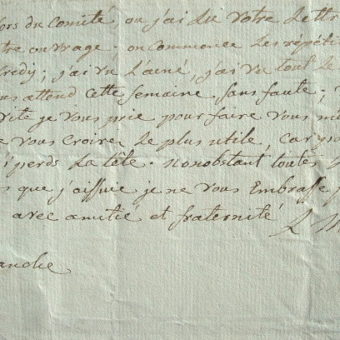 lors du Comité ou j'ai du votre Lettr
tre ouvrage. on commence Les répéti
redy; j'ai vu L'ainé, j'ai vu tout Le
us attend cette semaine sans faute;
vite je vous prie pour faire vous
vous croirer le plus utile, Car
perds La tête. nonobstant toutes
que j'aissuie je ne vous Embrasse
avec amitié et fraternité
anche